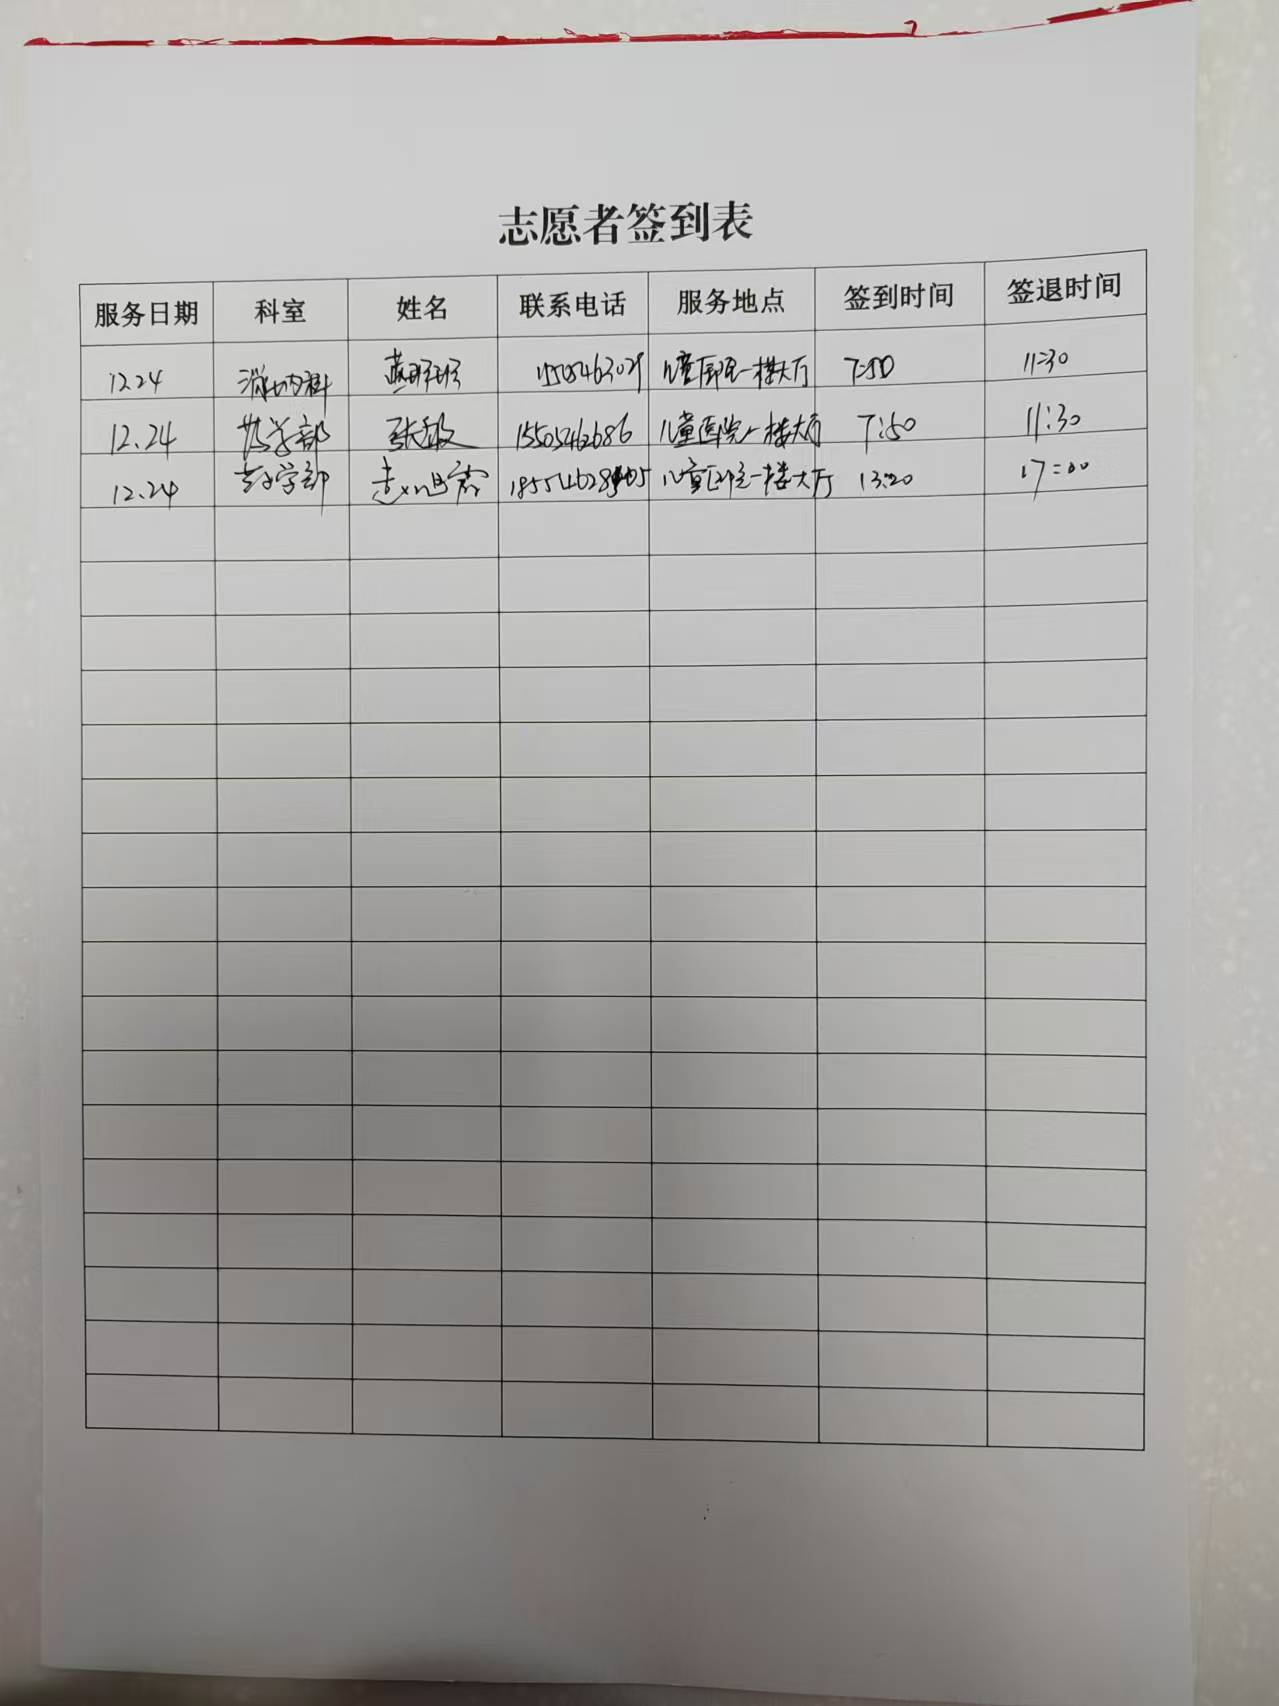 志愿者签到表
服务日期 科室 姓名 联系电话 服务地点 签到时间 签退时间
12.24 消化内科 儿童医院一楼大厅 7:50 11:30
12.24 药学部 张敏 15505462686 儿童医院一楼大厅 7:50 11:30
12.24 药学部 儿童医院一楼大厅 13:20 17:00